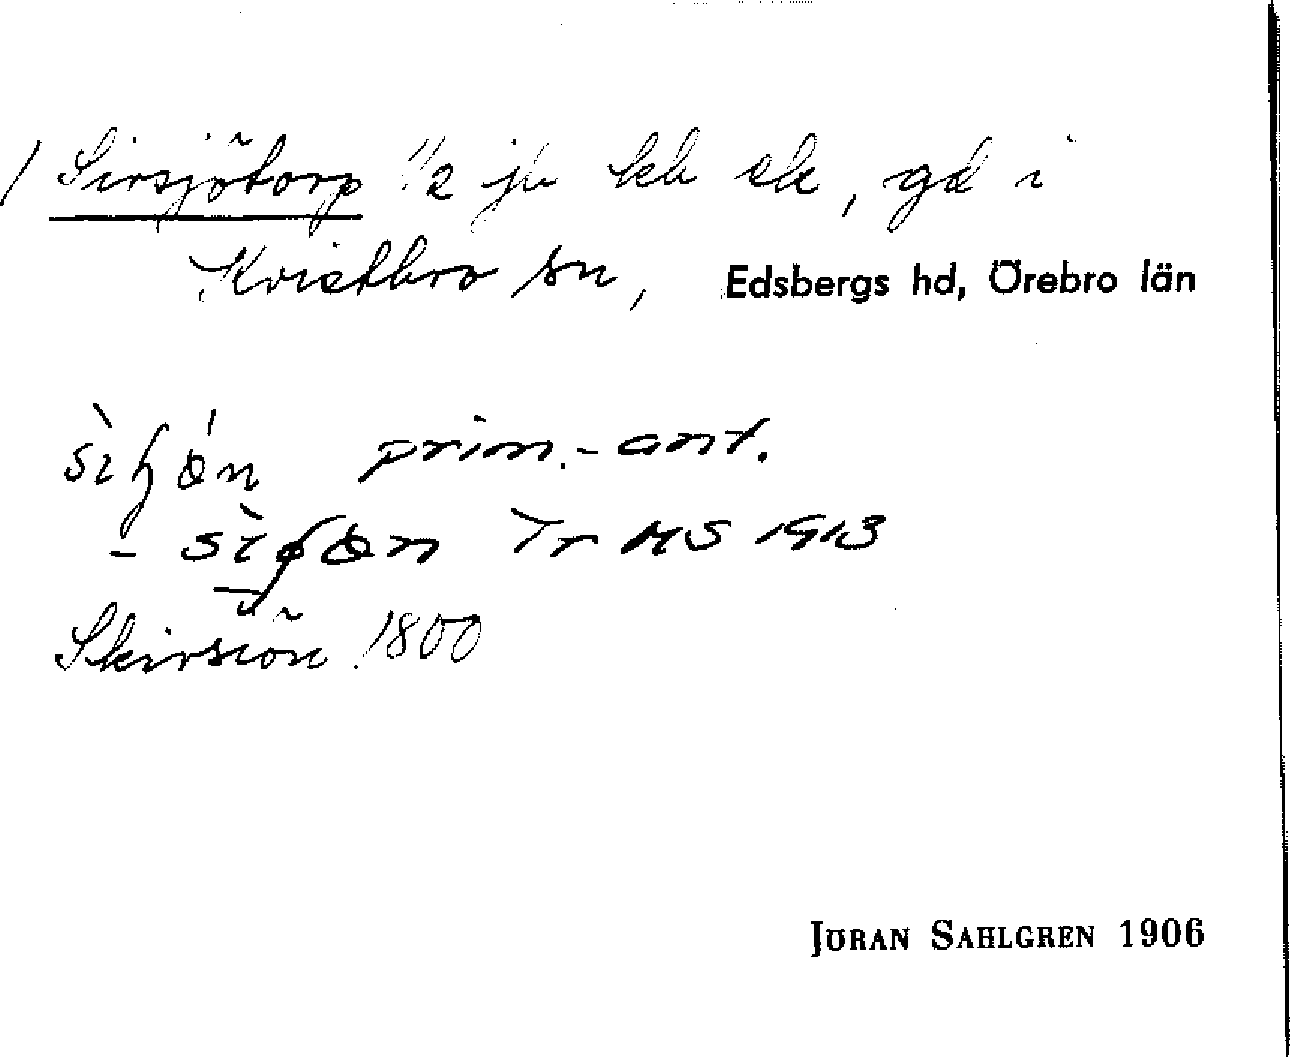 / Sirsjötorp 1/2 jb kb sk, gd i
Kvistbro sn, Edsbergs hd, Örebro län
prim.-ant.
Tr MS 1913
Skirsiön 1800
JÖRAN SAHLGREN 1906